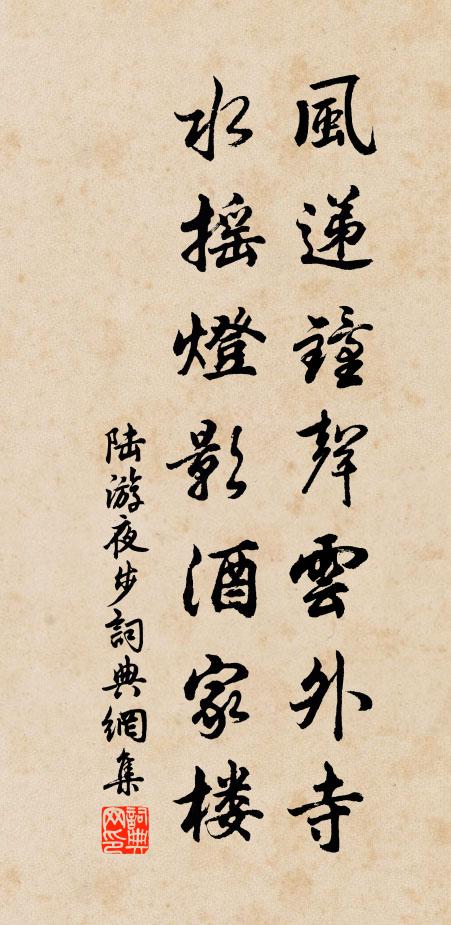 風递鐘聲雲外寺
水摇燈影酒家楼
陆游夜步詞典網集
詞典网印